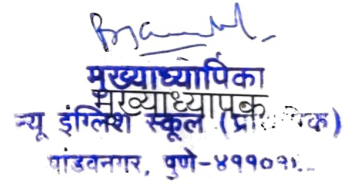 मुख्याध्यापिका
मुख्याध्यापक
न्यू इंग्लिश स्कूल
पांडवनगर, पुणे-४११०१